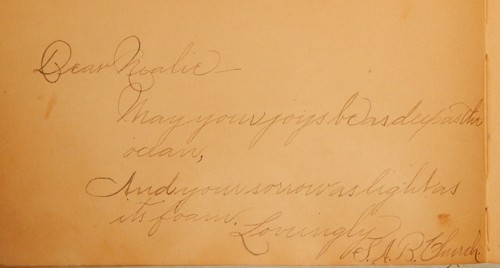 Dear Nealie —
May your joys be as deep as the
ocean,
And your sorrow as light as
its foam.
Lovingly
S. A. B. Church.